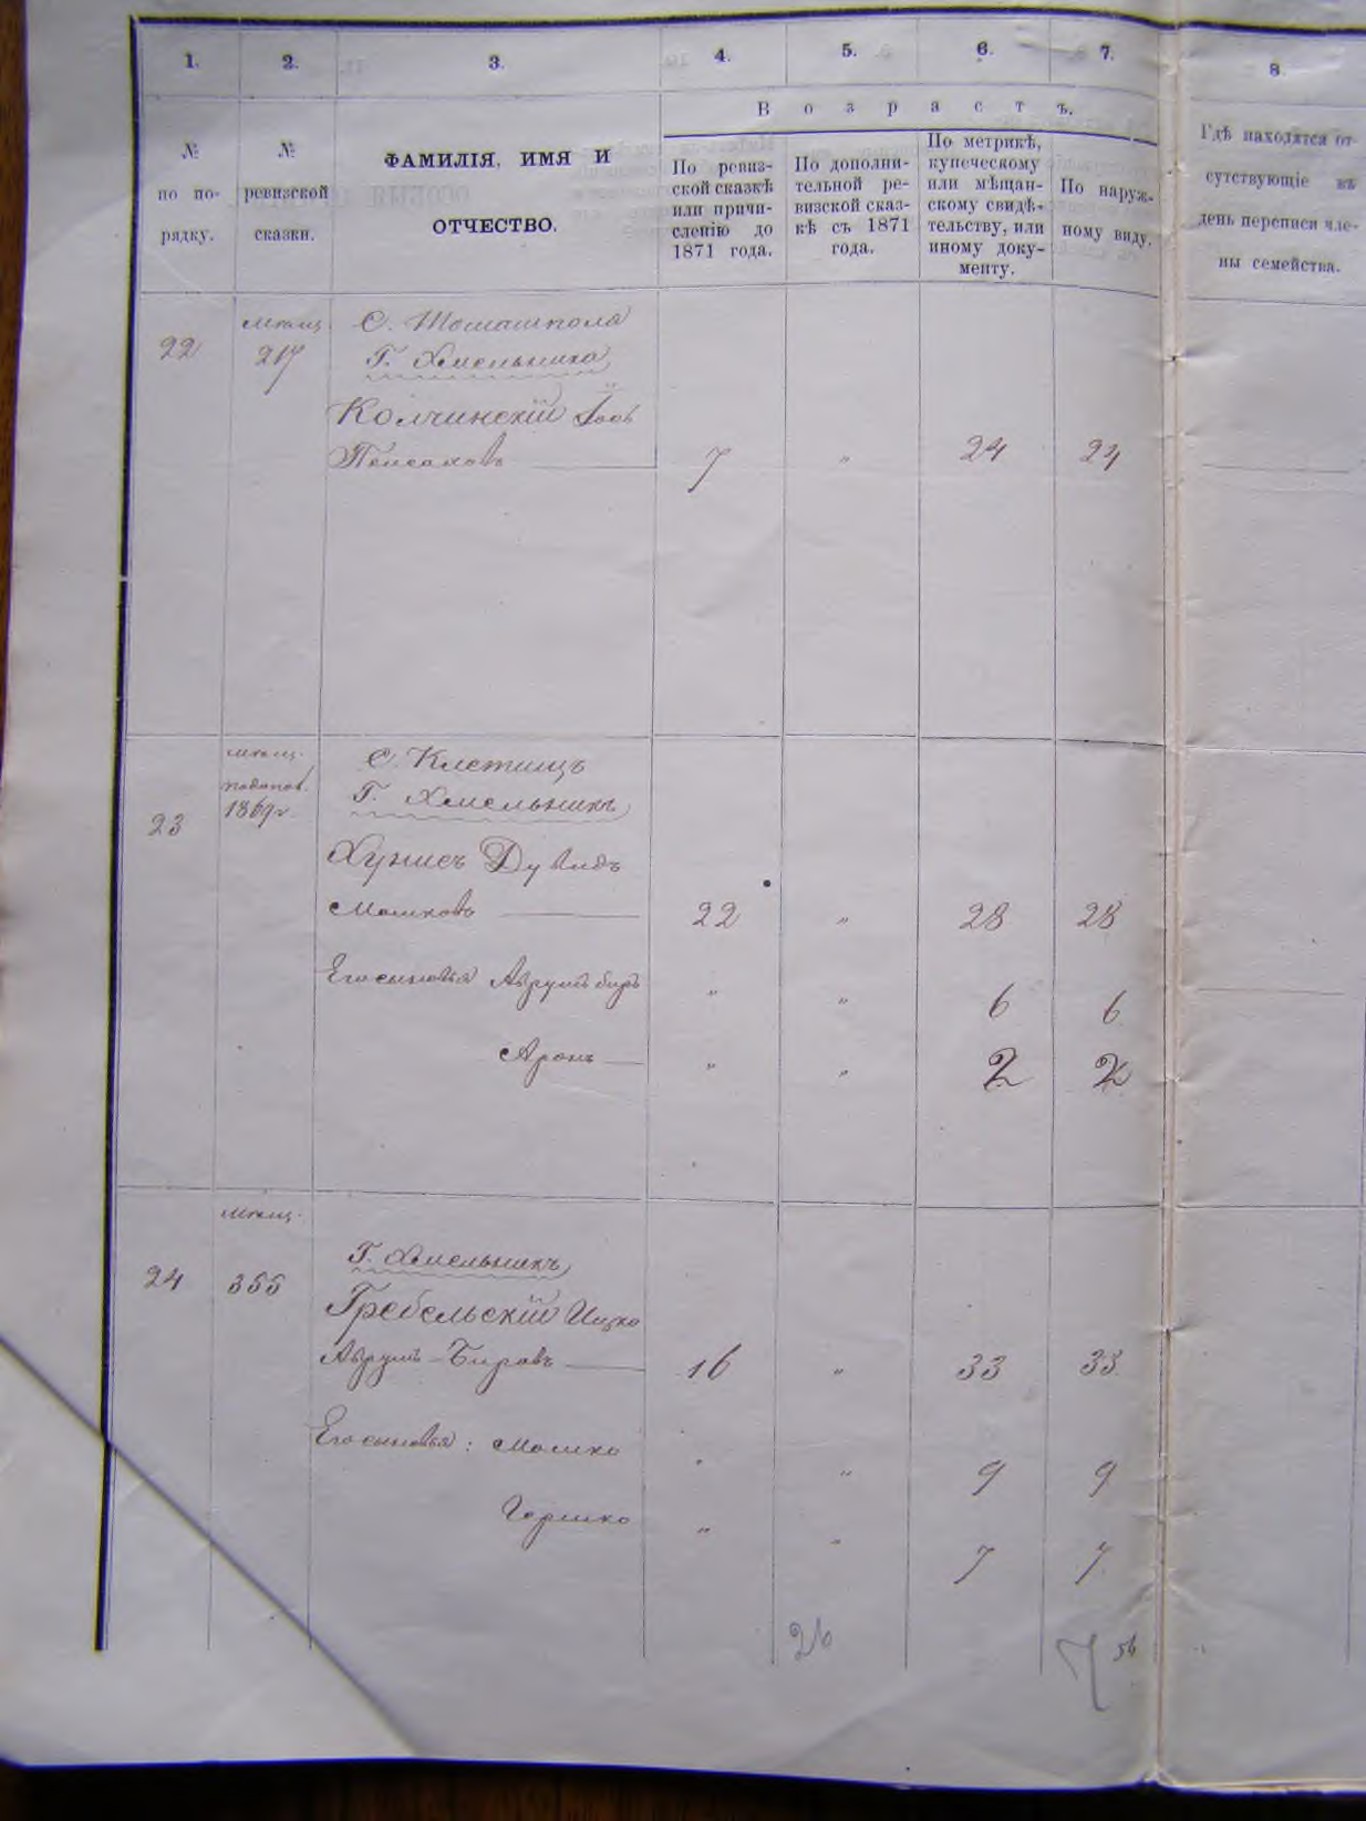 1. 2. 3. 4. 5. 6. 7. 8.
Возрастъ.
№
по по-
рядку.
№
ревизской
сказки.
ФАМИЛІЯ, ИМЯ И
ОТЧЕСТВО.
По ревиз-
ской сказкѣ
или причи-
сленію до
1871 года.
По дополни-
тельной ре-
визской сказ-
кѣ съ 1871
года.
По метрикѣ,
купеческому
или мѣщан-
скому свидѣ-
тельству, или
иному доку-
менту.
По наруж-
ному виду.
Гдѣ находятся от-
сутствующіе въ
день переписи чле-
ны семейства.
22
мѣщ
217
С. Томашполя
Г. Хмельника
Колчинскій Іось
Пейсаховъ 7 " 24 24
23
мѣщ.
1869 г.
С. Клетищъ
Г. Хмельникъ
Хунисъ Дувидъ
Мошковъ 22 " 28 28
Его сыновья Аврумъ беръ " " 6 6
Аронъ " " 2 2
24
мѣщ.
355
Г. Хмельникъ
Гребельскій Ицко
Аврумъ-Беровъ 16 " 33 33
Его сыновья: Мошко " " 9 9
Гершко " " 7 7
26
7 56